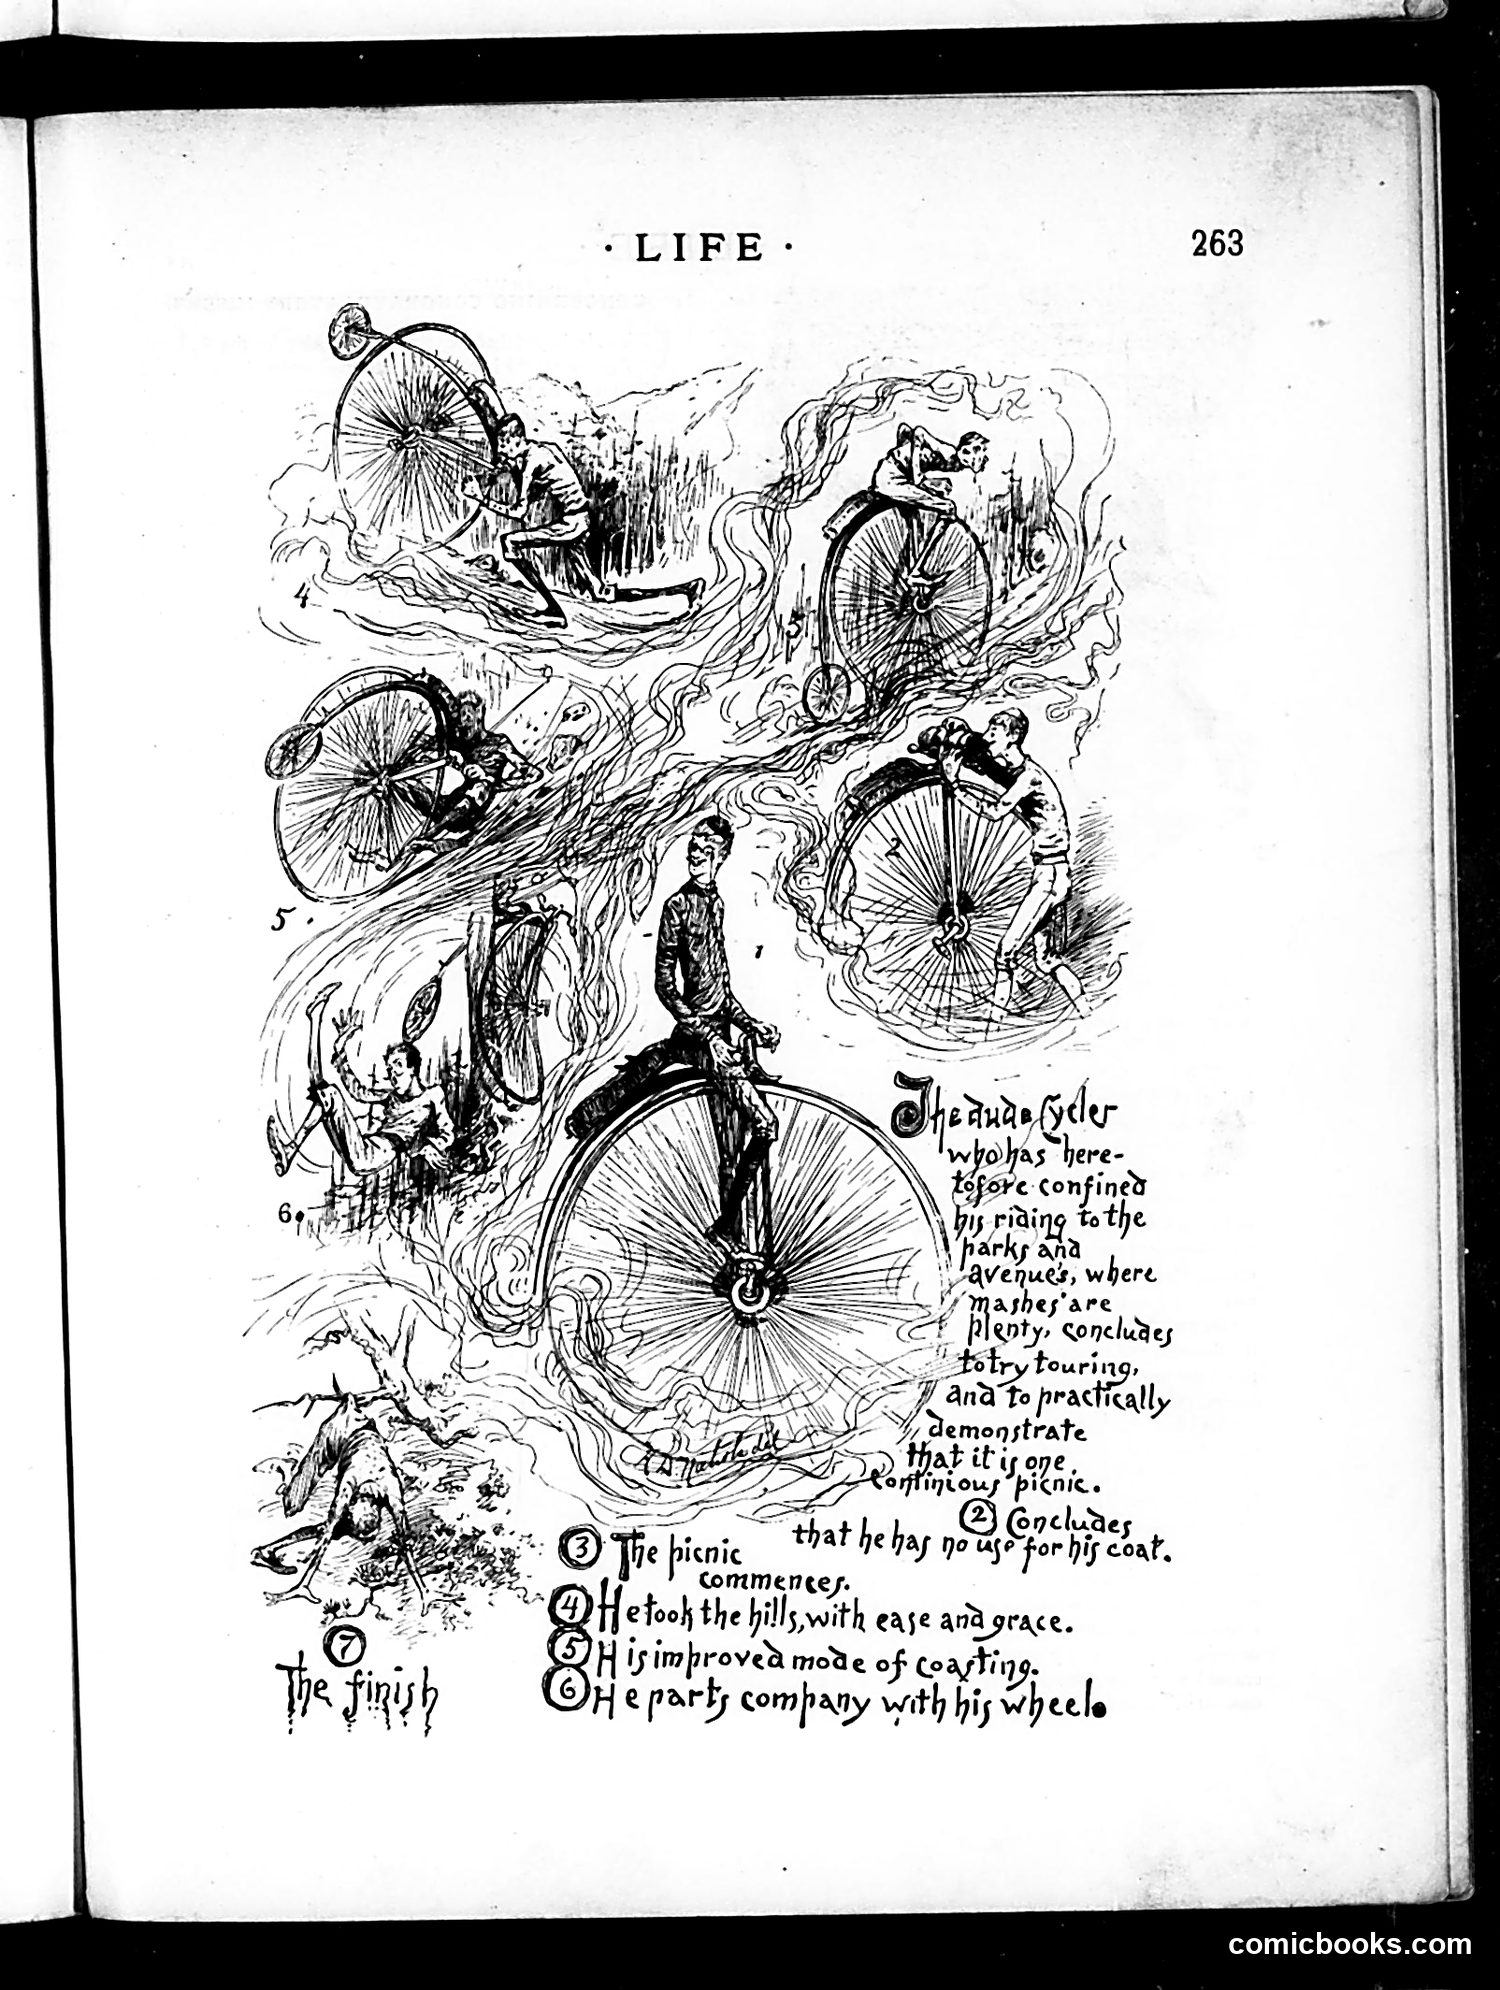 · LIFE ·
263
4
3
5.
2
1
6.
The dude Cycler
who has here-
tofore confined
his riding to the
parks and
avenue's, where
mashes are
plenty, concludes
to try touring,
and to practically
demonstrate
that it is one
continious picnic.
2 Concludes
that he has no use for his coat.
3 The picnic
commences.
4 He took the hills, with ease and grace.
5 His improved mode of coasting.
6 He parts company with his wheel.
7
The finish
comicbooks.com